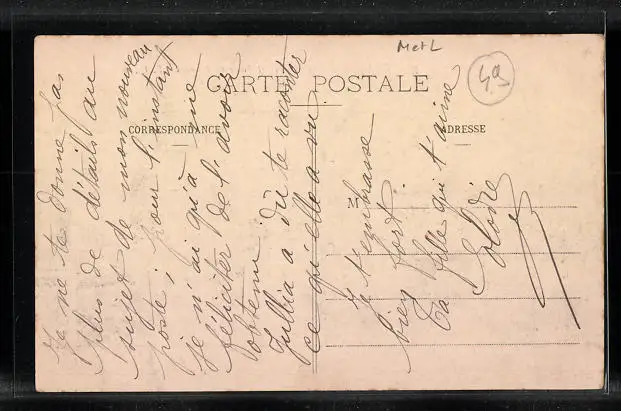 Met L
49
CARTE POSTALE
CORRESPONDANCE
ADRESSE
M
Je ne te donne pas
plus de détails au
sujet de mon nouveau
poste ; pour l'instant
je n'ai qu'à me
féliciter de l'avoir
obtenu. 
Jullia a dû te raconter
ce qu'elle a vu.
Je t'embrasse
bien fort.
Ta fille qui t'aime
Elodie